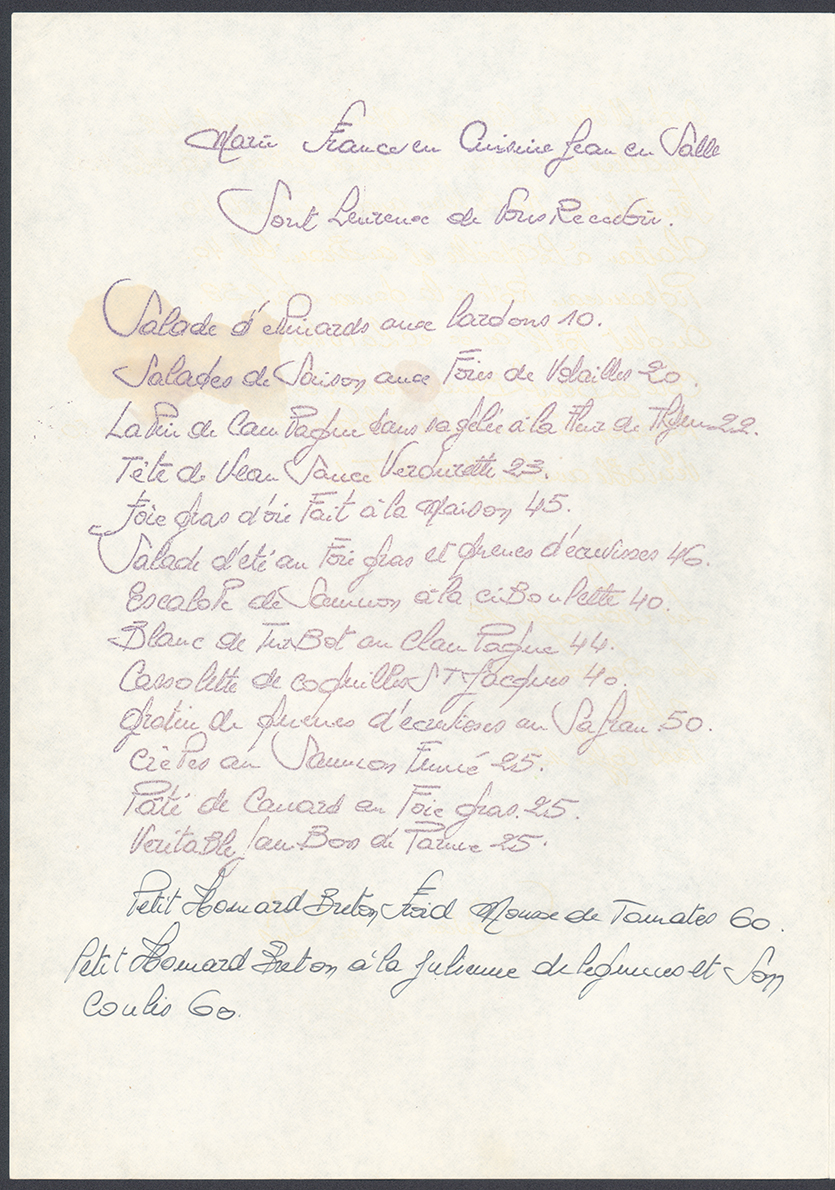 Marie France en Cuisine Jean en Salle
Sont Heureux de Vous Recevoir.
Salade d'épinards aux lardons 10.
Salades de Saison aux Foies de Volailles 20.
Lapin de Campagne dans sa gelée à la Fleur de Thym 22.
Tête de Veau Sauce Verdurette 23.
Foie gras d'oie Fait à la Maison 45.
Salade d'eté au Foie gras et queues d'écrevisses 46.
Escalope de Saumon à la ciBoulette 40.
Blanc de TurBot au Champagne 44.
Cassolette de coquilles ST Jacques 40.
gratin de queues d'écrevisses au Safran 50.
crêpes au Saumon Fumé 25.
Pâté de Canard au Foie gras. 25.
VeritaBle JamBon de Parme 25.
Petit Homard Breton Froid Mousse de Tomates 60.
Petit Homard Breton à la Julienne de legumes et Son
Coulis 60.